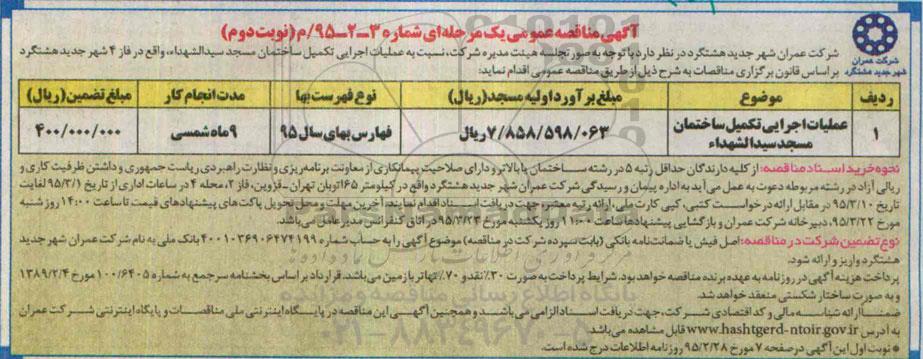 آگهی مناقصه عمومی یک مرحله‌ای شماره ۳-۲-۹۵/م (نوبت دوم)
شرکت عمران شهر جدید هشتگرد در نظر دارد با توجه به صورتجلسه هیئت مدیره شرکت، نسبت به عملیات اجرایی تکمیل ساختمان مسجد سیدالشهداء، واقع در فاز ۴ شهر جدید هشتگرد
بر اساس قانون برگزاری مناقصات به شرح ذیل از طریق مناقصه عمومی اقدام نماید:
شرکت عمران
شهر جدید هشتگرد
ردیف موضوع مبلغ برآورد اولیه مسجد (ریال) نوع فهرست بها مدت انجام کار مبلغ تضمین (ریال)
۱ عملیات اجرایی تکمیل ساختمان مسجد سیدالشهداء ۷/۸۵۸/۵۹۸/۰۶۳ ریال فهارس بهای سال ۹۵ ۹ ماه شمسی ۴۰۰/۰۰۰/۰۰۰
نحوه خرید اسناد مناقصه: از کلیه دارندگان حداقل رتبه ۵ در رشته ساختمان یا بالاتر و دارای صلاحیت پیمانکاری از معاونت برنامه‌ریزی و نظارت راهبردی ریاست جمهوری و داشتن ظرفیت کاری و
ریالی آزاد در رشته مربوطه دعوت به عمل می‌آید به اداره پیمان و رسیدگی شرکت عمران شهر جدید هشتگرد واقع در کیلومتر ۱۶۵ اتوبان تهران-قزوین، فاز ۲، محله ۴ در ساعات اداری از تاریخ ۹۵/۳/۱ لغایت
تاریخ ۹۵/۳/۱۰ در مقابل ارائه درخواست کتبی، کپی کارت ملی، ارائه رتبه معتبر، جهت دریافت اسناد اقدام نمایند. آخرین مهلت و محل تحویل پاکت‌های پیشنهادهای قیمت تا ساعت ۱۴:۰۰ روز شنبه
مورخ ۹۵/۳/۲۲، دبیرخانه شرکت عمران و بازگشایی پیشنهادها ساعت ۱۱:۰۰ روز یکشنبه مورخ ۹۵/۳/۲۳ در اتاق کنفرانس مدیرعامل می‌باشد.
نوع تضمین شرکت در مناقصه: اصل فیش یا ضمانت‌نامه بانکی (بابت سپرده شرکت در مناقصه) موضوع آگهی را به حساب شماره ۴۰۰۱۰۳۶۹۰۶۴۷۴۱۹۹ بانک ملی به نام شرکت عمران شهر جدید
هشتگرد واریز و ارائه شود.
پرداخت هزینه آگهی در روزنامه به عهده برنده مناقصه خواهد بود. شرایط پرداخت به صورت ۳۰٪ نقد و ۷۰٪ تهاتر با زمین می‌باشد. قرارداد بر اساس بخشنامه سرجمع به شماره ۱۰۰/۶۴۰۵ مورخ ۱۳۸۹/۲/۴
و به صورت ساختار شکستی منعقد خواهد شد.
ضمنا ارائه شناسه مالی و کد اقتصادی شرکت، جهت دریافت اسناد الزامی می‌باشد و همچنین آگهی این مناقصه در پایگاه اینترنتی ملی مناقصات و پایگاه اینترنتی شرکت عمران
به آدرس www.hashtgerd-ntoir.gov.ir قابل مشاهده می‌باشد.
• نوبت اول این آگهی در صفحه ۷ مورخ ۹۵/۲/۲۸ روزنامه اطلاعات درج شده است.
پایگاه اطلاع رسانی مناقصه و مزایده
۰۲۱-۸۸۳۴۹۶۷۰-۸